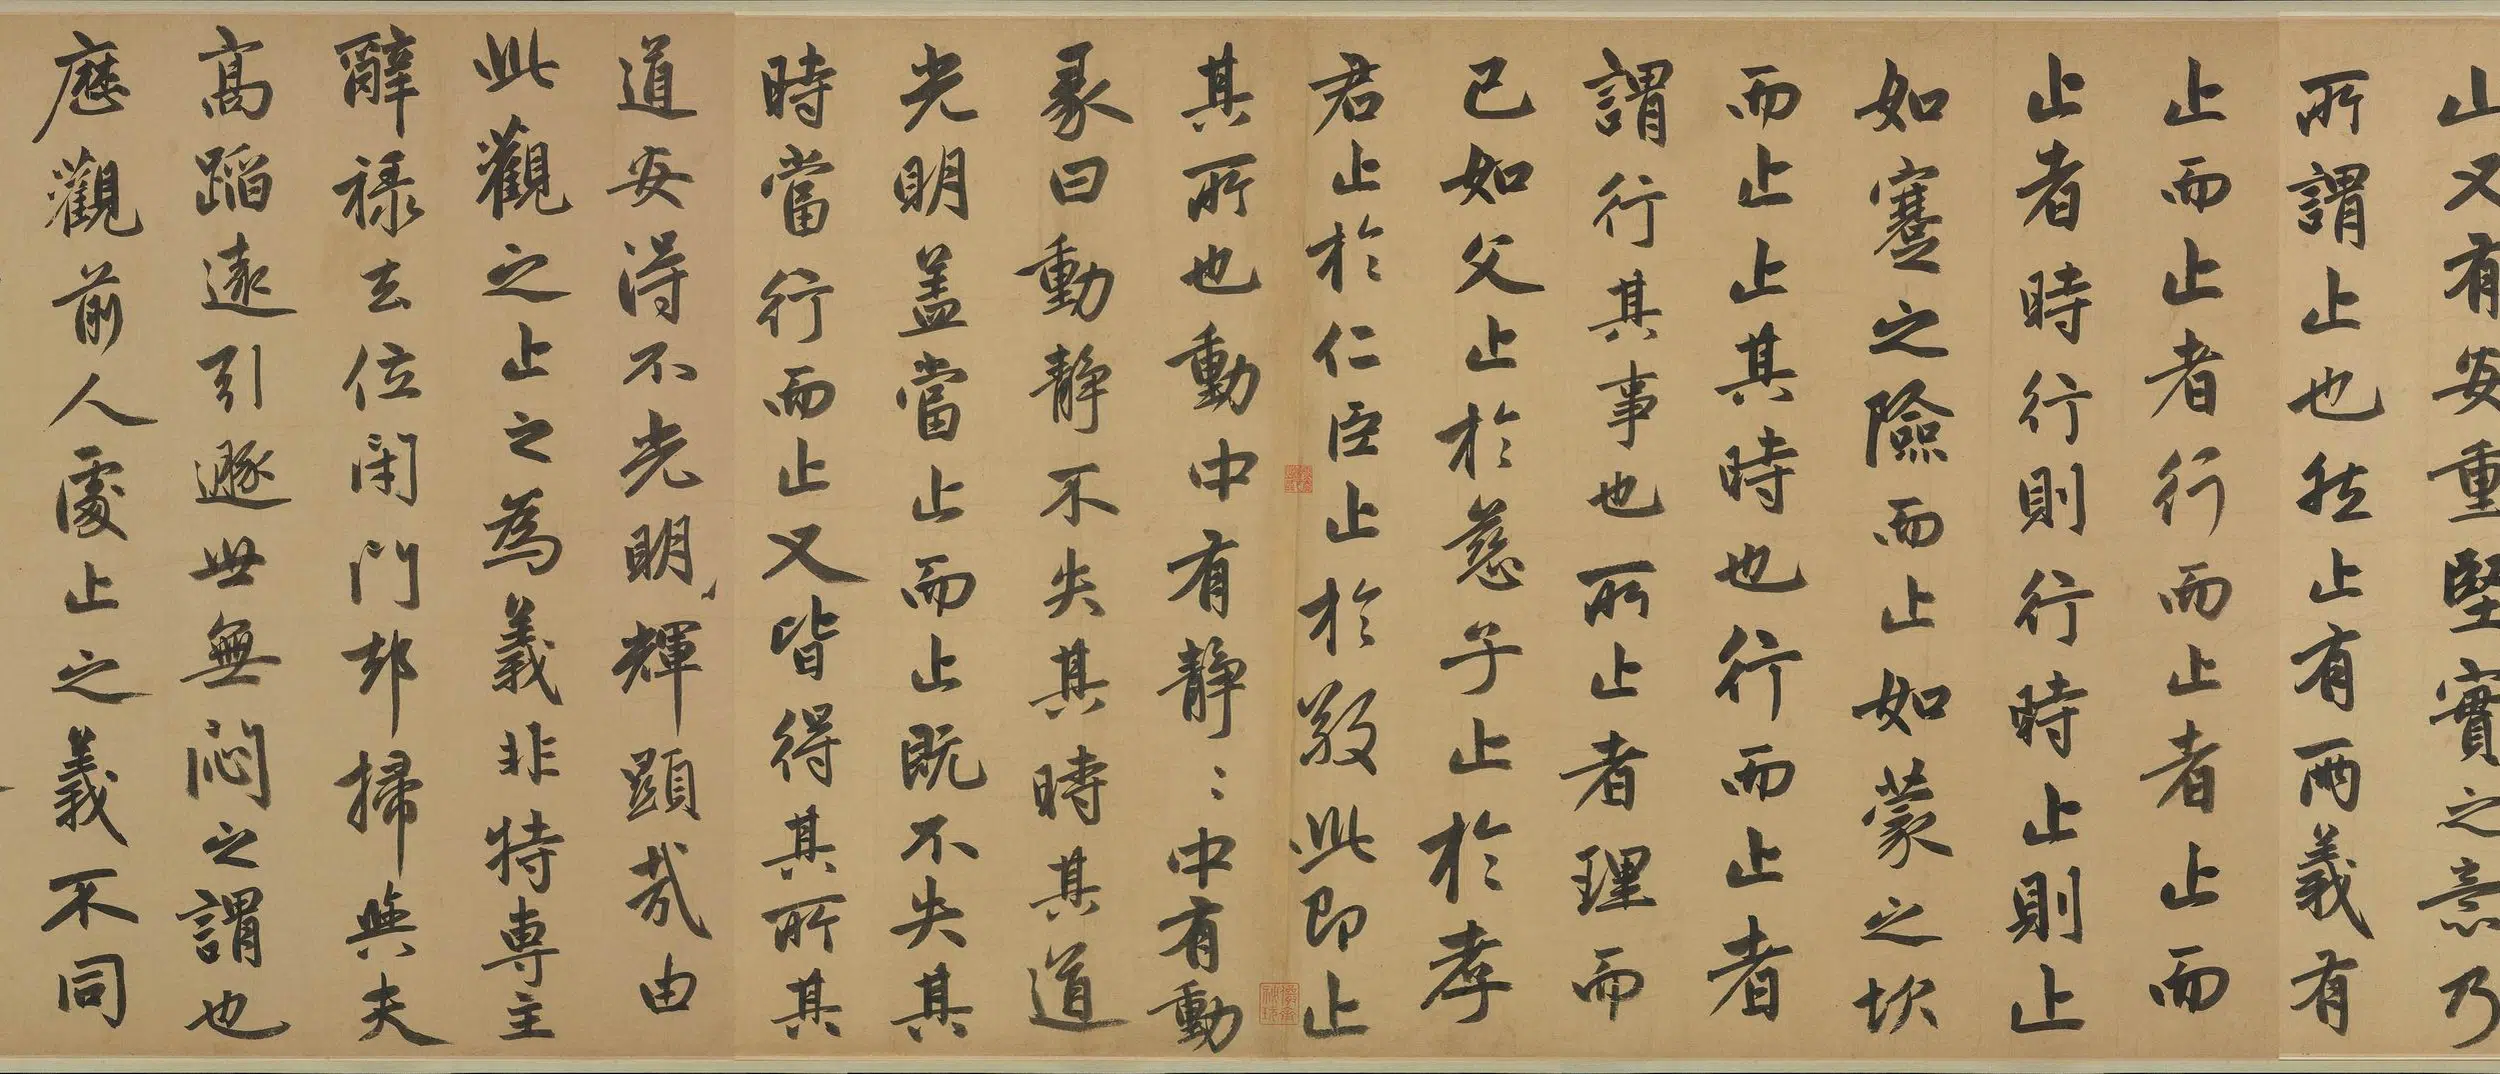 山又有安重堅實之意乃
所謂止也然止有兩義有
止而止者行而止者止而
止者時行則行時止則止
如蹇之險而止如蒙之坎
而止止其時也行而止者
謂行其事也所止者理而
已如父止於慈子止於孝
君止於仁臣止於敬此即止
其所也動中有靜〻中有動
彖曰動靜不失其時其道
光明蓋當止而止既不失其
時當行而止又皆得其所其
道安得不光明輝顯哉由
此觀之止之為義非特專主
辭祿去位閑門却掃與夫
高蹈遠引遯世無悶之謂也
歷觀前人處止之義不同